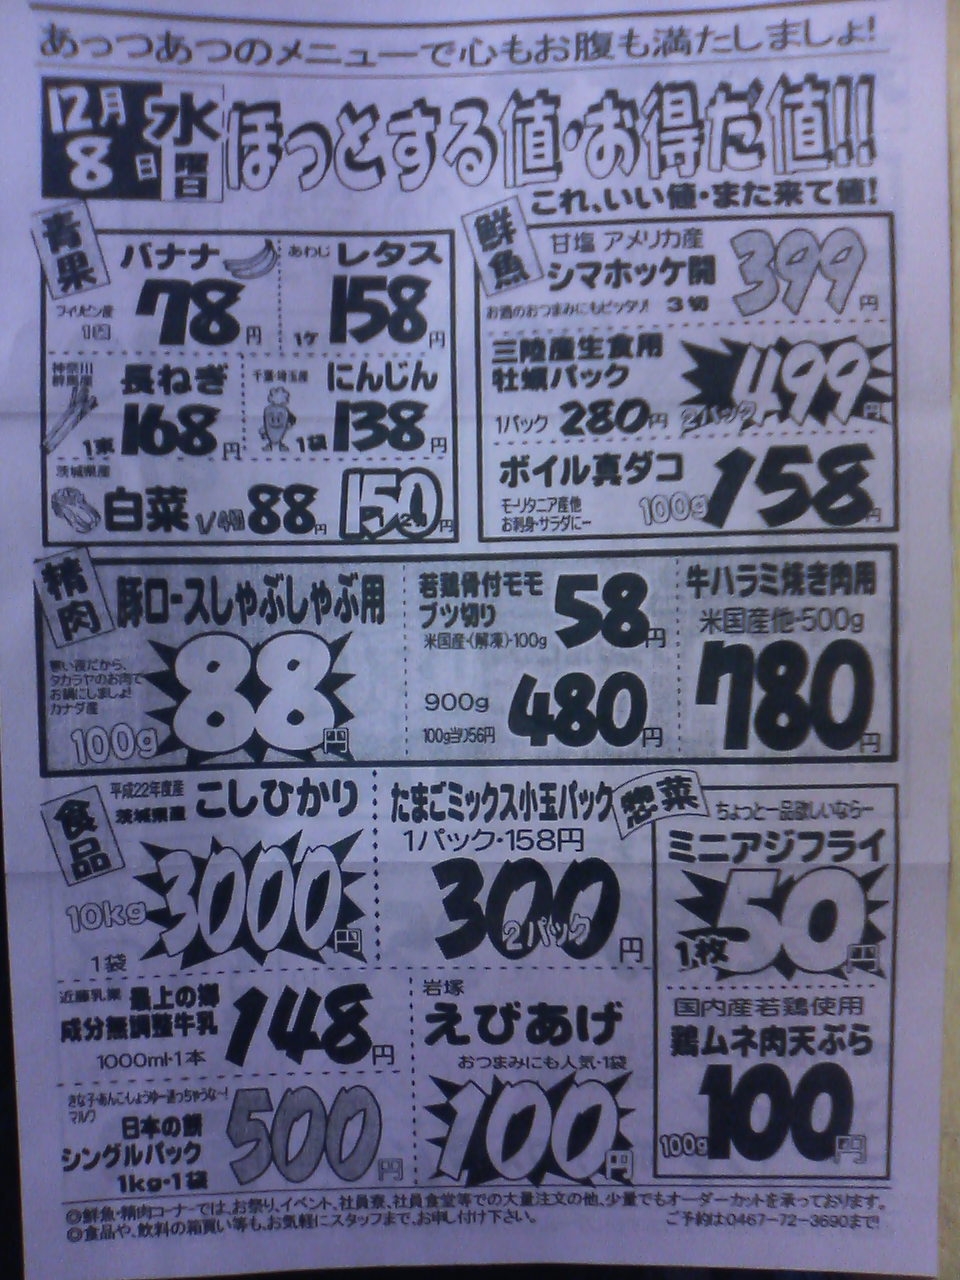 あっつあつのメニューで心もお腹も満たしましょ!
12月8日水曜
ほっとする値・お得だ値!!
これ、いい値・また来て値!
青果
バナナ
フィリピン産
78円
あわじ レタス
1ケ 158円
神奈川
群馬産
長ねぎ
1束 168円
千葉・埼玉産
にんじん
1袋 138円
茨城県産
白菜 1/4個 88円
150円
鮮魚
甘塩 アメリカ産
シマホッケ開
お酒のおつまみにもピッタリ! 3切
399円
三陸産生食用
牡蠣パック
1パック 280円
2パック 499円
ボイル真ダコ
モーリタニア産他
お刺身・サラダに
100g 158円
精肉
豚ロースしゃぶしゃぶ用
寒い夜だから、
タカラヤのお肉で
お鍋にしましょ!
カナダ産
100g 88円
若鶏骨付モモ
ブツ切り
米国産・(解凍)・100g
58円
900g
100g当り56円
480円
牛ハラミ焼き肉用
米国産他・500g
780円
食品
平成22年度産
茨城県産
こしひかり
10kg
1袋
3000円
たまごミックス小玉パック
1パック・158円
300円
2パック
近藤乳業
最上の郷
成分無調整牛乳
1000ml・1本
148円
岩塚
えびあげ
おつまみにも人気・1袋
100円
きな子・あんこ・しょうゆー迷っちゃうな~!
マルワ
日本の餅
シングルパック
1kg・1袋
500円
惣菜
ちょっと一品欲しいなら
ミニアジフライ
1枚 50円
国内産若鶏使用
鶏ムネ肉天ぷら
100g 100円
◎鮮魚・精肉コーナーでは、お祭り、イベント、社員寮、社員食堂等での大量注文の他、少量でもオーダーカットを承っております。
◎食品や、飲料の箱買い等も、お気軽にスタッフまで、お申し付け下さい。
ご予約は0467-72-3690まで!